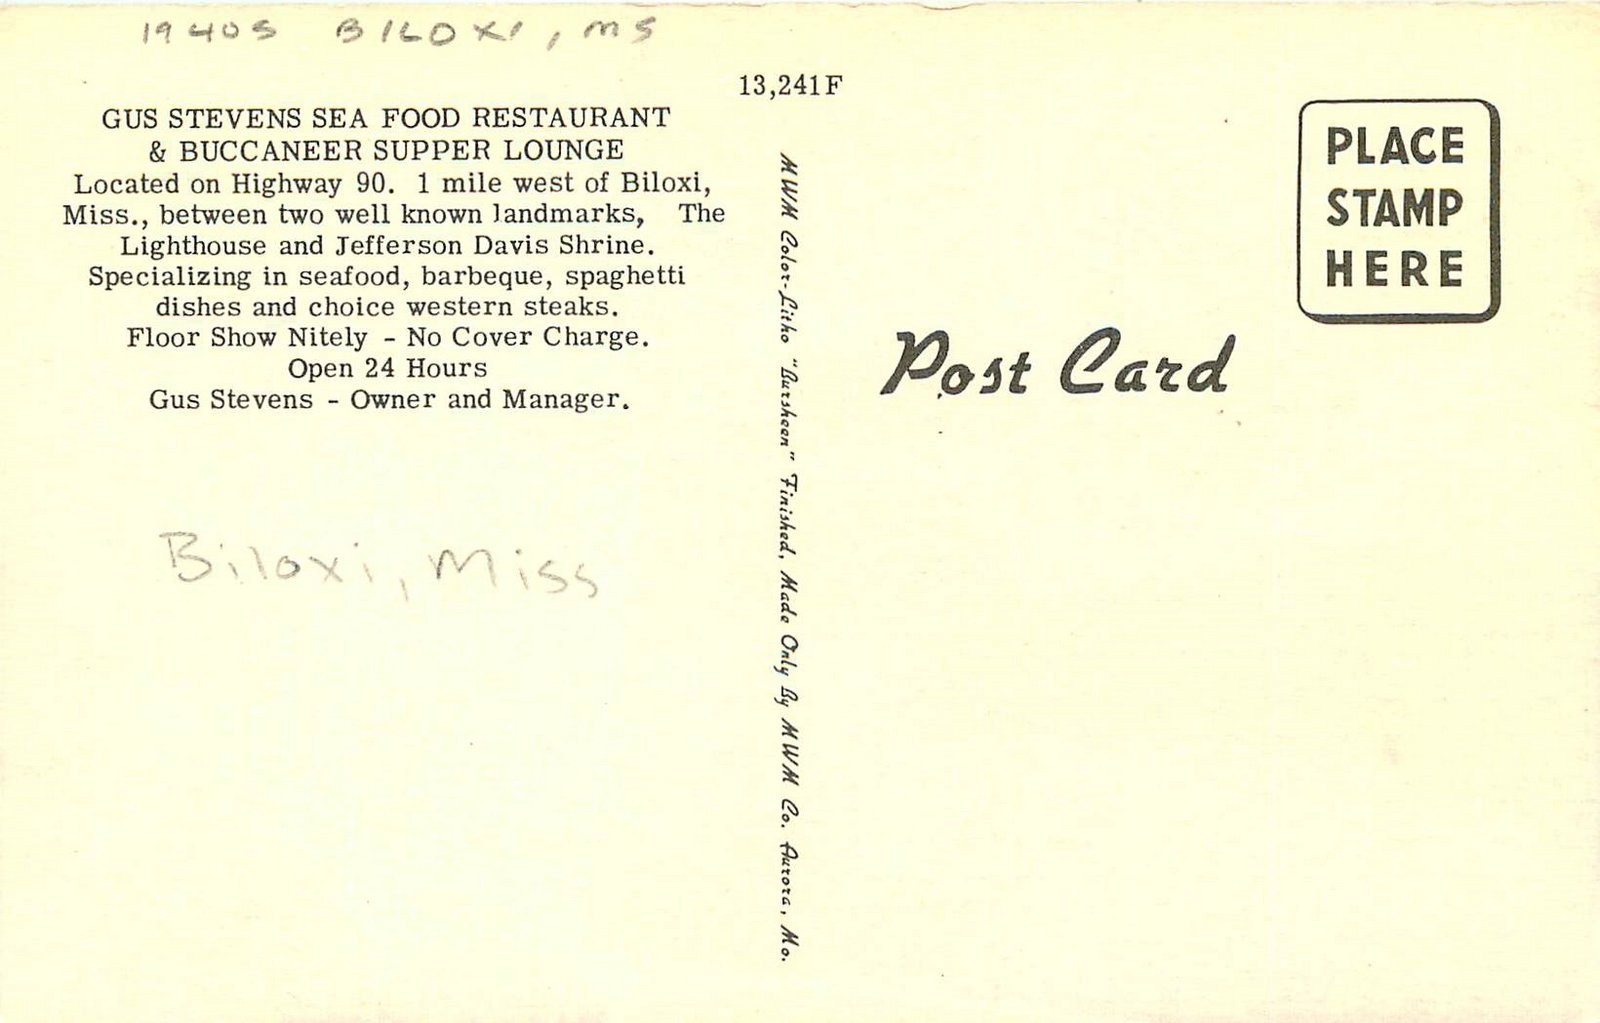 1940s BILOXI, MS
13,241F
GUS STEVENS SEA FOOD RESTAURANT
& BUCCANEER SUPPER LOUNGE
Located on Highway 90. 1 mile west of Biloxi,
Miss., between two well known landmarks, The
Lighthouse and Jefferson Davis Shrine.
Specializing in seafood, barbeque, spaghetti
dishes and choice western steaks.
Floor Show Nitely - No Cover Charge.
Open 24 Hours
Gus Stevens - Owner and Manager.
Biloxi, Miss
MWM Color-Litho "Bursheen" Finished, Made Only By MWM Co. Aurora, Mo.
PLACE
STAMP
HERE
Post Card